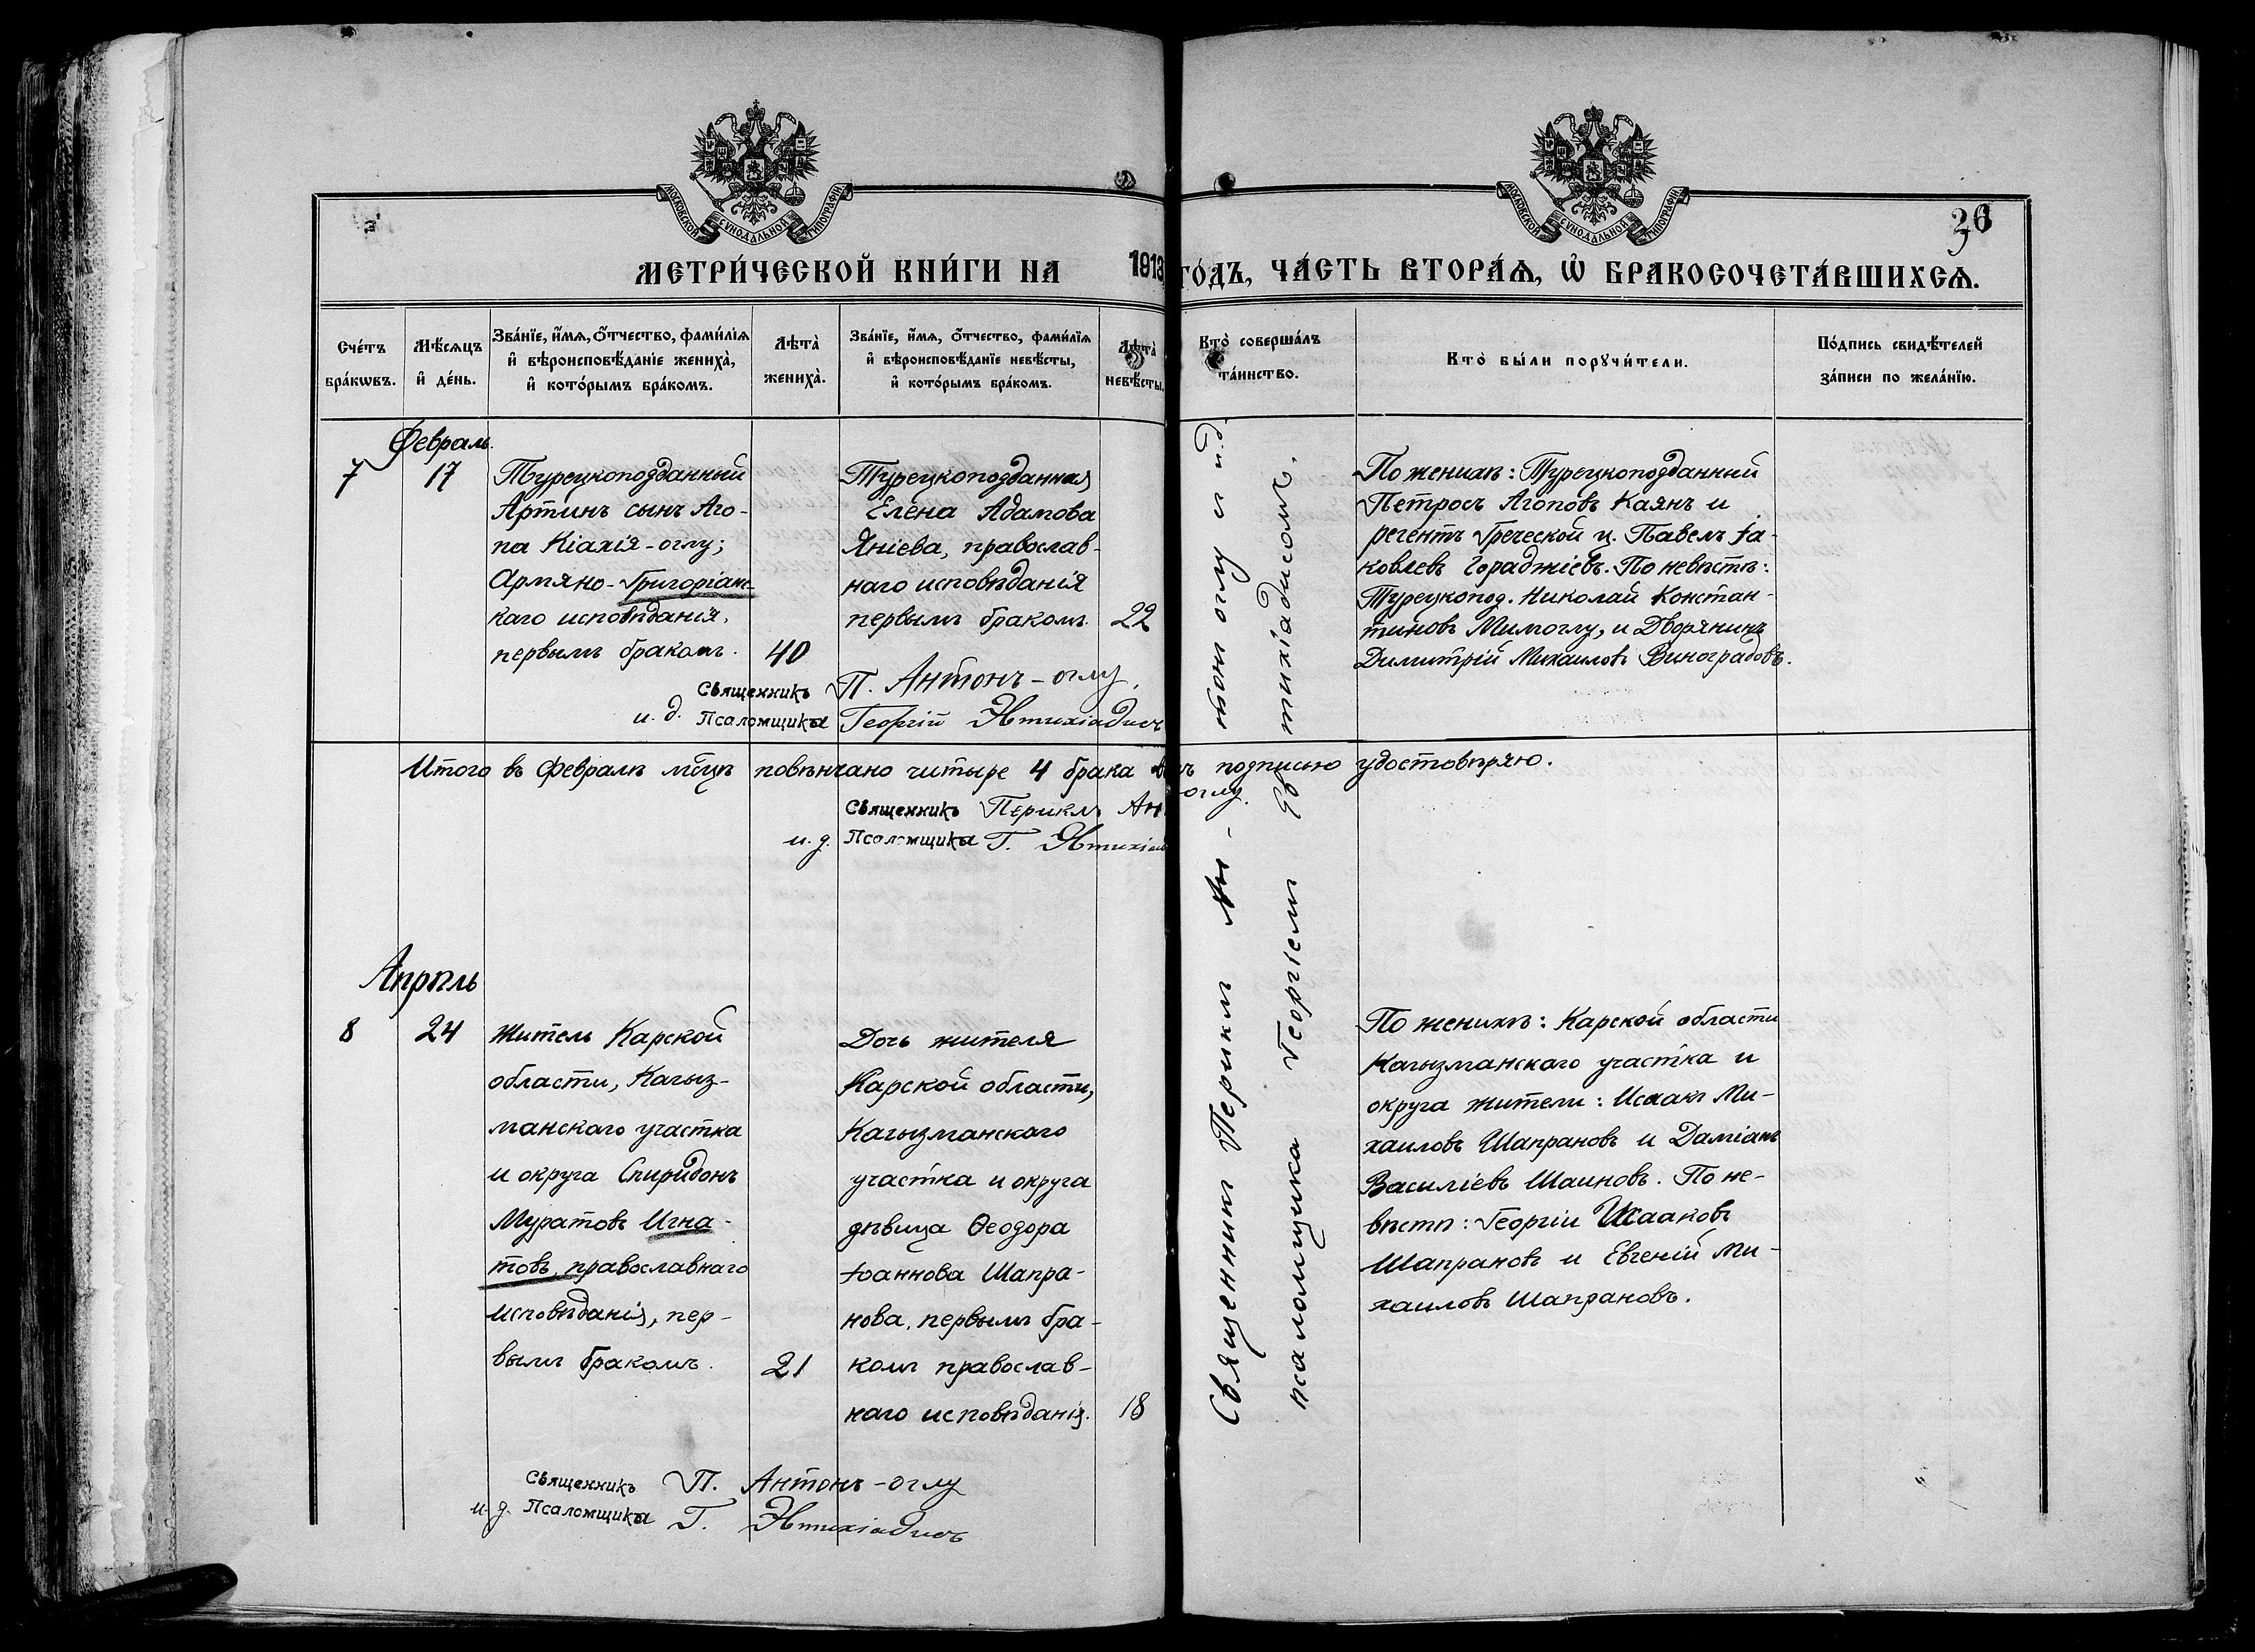 МОСКОВСКОЙ СѴНОДАЛЬНОЙ ТИПОГРАФІИ
МОСКОВСКОЙ СѴНОДАЛЬНОЙ ТИПОГРАФІИ
36
МЕТРИ́ЧЕСКОЙ КНИ́ГИ НА 1913 ГО́ДЪ, ЧА́СТЬ ВТОРА́Ѧ, Ѽ БРАКОСОЧЕТА́ВШИХСѦ.
Сче́тъ
бра́кѡвъ.
Мѣ́сѧцъ
и҆ де́нь.
Зва́нїе, и҆́мѧ, ѻ҆́тчество, фами́лїѧ
и҆ вѣроисповѣ́данїе жениха̀,
и҆ кото́рымъ бра́комъ.
Лѣ́та̀
жениха̀.
Зва́нїе, и҆́мѧ, ѻ҆́тчество, фами́лїѧ
и҆ вѣроисповѣ́данїе невѣ́сты,
и҆ кото́рымъ бра́комъ.
Лѣ́та̀
невѣ́сты.
Кто̀ соверша́лъ
та́инство.
Кто̀ бы́ли порꙋчи́тели.
По́дпись свидѣ́телей
за́писи по жела́нїю.
Февраль.
7
17
Турецкоподданный
Артинъ сынъ Аго-
па Кіахія-оглу;
Армяно-Григоріанс-
каго исповѣданія,
первымъ бракомъ.
40
Турецкоподданная
Елена Адамова
Яніева, православ-
наго исповѣданія
первымъ бракомъ.
22
По женихѣ: Турецкоподданный
Петросъ Агоповъ Каянъ и
регентъ Греческой ц. Павелъ Іа-
ковлевъ Гораджіевъ. По невѣстѣ:
Турецкопод. Николай Констан-
тиновъ Мимоглу, и Дворянинъ
Димитрій Михаиловъ Виноградовъ.
Священникъ П. Антонъ-оглу,
и. д. Псаломщика Георгій Эвтихіадисъ
Итого въ Февралѣ мѣсцѣ повѣнчано читыре 4 брака подписью удостовѣряю.
Священникъ Периклъ Ан оглу.
и. д. Псаломщика Г. Эвтихіад
Священник Перикл Ан-тон оглу и и.д.
псаломщика Георгіем Эвтихіадисомъ.
Апрѣль
8
24
Житель Карской
области, Кагыз-
манскаго участка
и округа Спиридонъ
Муратовъ Игна-
товъ, православнаго
исповѣданія, пер-
вымъ бракомъ.
21
Дочь жителя
Карской области,
Кагызманскаго
участка и округа
дѣвица Ѳеодора
Іоаннова Шапра-
нова, первымъ бра-
комъ православ-
наго исповѣданія.
18
По женихѣ: Карской области
Кагызманскаго участка и
округа жители: Исаакъ Ми-
хаиловъ Шапрановъ и Даміанъ
Василіевъ Шаиновъ. По не-
вѣстѣ: Георгій Исааковъ
Шапрановъ и Евгеній Ми-
хаиловъ Шапрановъ.
Священникъ П. Антонъ-оглу
и. д. Псаломщика Г. Эвтихіадисъ